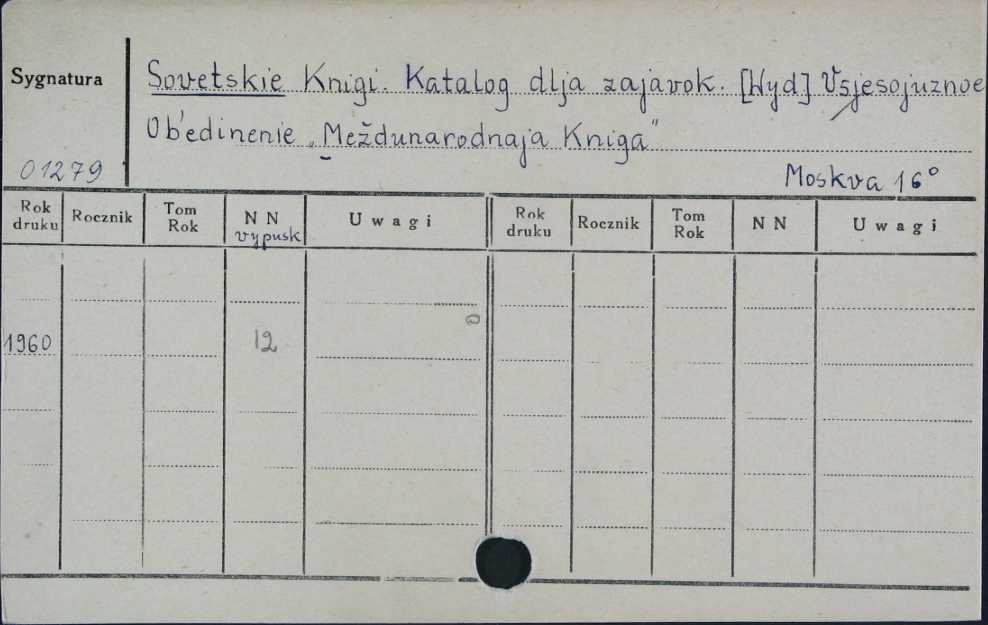 Sygnatura
Sovetskie Knigi. Katalog dlja zajavok. [Wyd] Vsjesojuznoe
Ob'edinenie „Meždunarodnaja Kniga"
01279
Moskva 16°
Rok druku Rocznik Tom Rok N N vypusk U w a g i Rok druku Rocznik Tom Rok N N U w a g i
1960 12